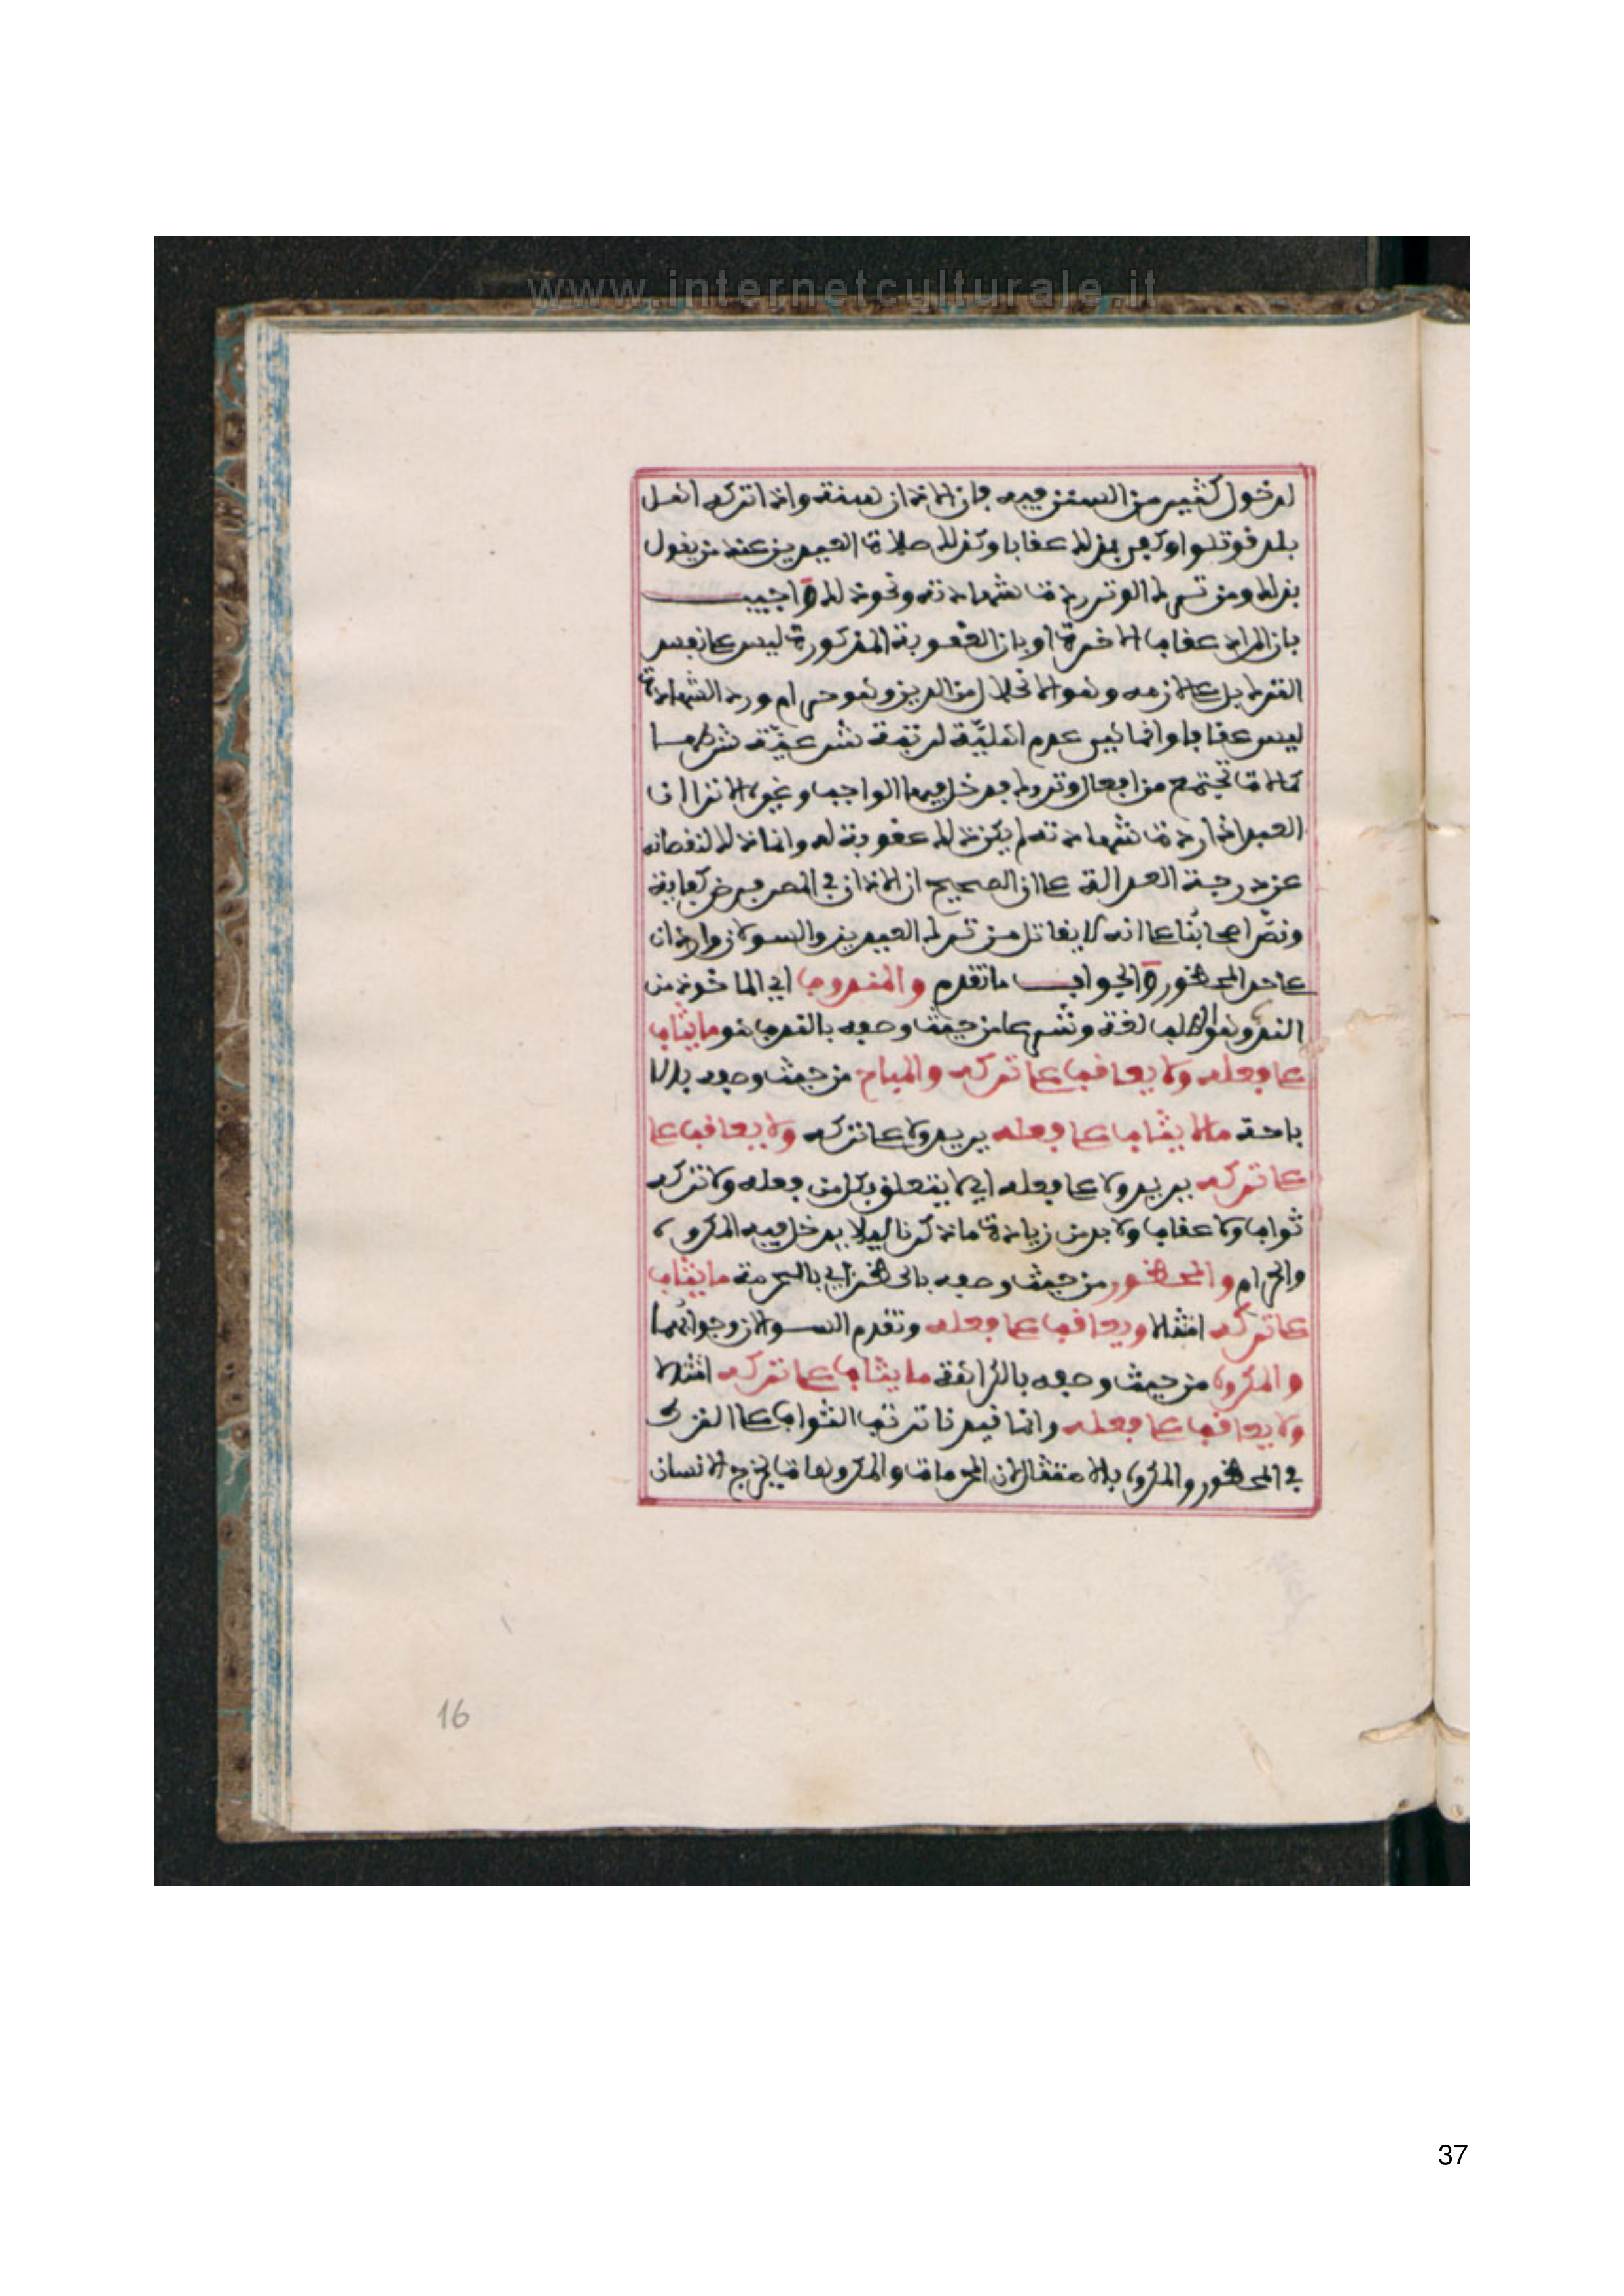 www.internetculturale.it
لدخول كثير من السنن فيه فإن الاذان سنة واذا تركه اهل
بلد قوتلوا وكفى بذلك عقابا وكذلك صلاة العيدين عند من يقول
بذلك ومن ترك الوتر ردت شهادته ونحو ذلك واجيب
بان المراد عقاب الاخرة او بان العقوبة المذكورة ليس على نفس
الترك بل على لازمه وهو الانحلال من الدين وهو حرام ورد الشهادة
ليس عقابا وانما هي عدم اهلية لرتبة شرعية شرطها
كمالات تجتمع من افعال وتروك فيدخل فيها الواجب وغيره الا ترا ان
العبد اذا ردت شهادته لم يكن ذلك عقوبة له وانما ذلك لنقصانه
عن درجة العدالة على ان الصحيح ان الاذان في المصر فرض كفاية
ونص اصحابنا على انه لا يقاتل من ترك العيدين والسوالان واردان
على حد المحظور والجواب ما تقدم والمندوب اي الماخوذ من
الندب وهو الطلب لغة وشرعا من حيث وصفه بالندب هو ما يثاب
على فعله ولا يعاقب على تركه والمباح من حيث وصفه بالا
باحة ما لا يثاب على فعله يريد ولا على تركه ولا يعاقب على
على تركه يريد ولا على فعله اي لا يتعلق بكل من فعله ولا تركه
ثواب ولا عقاب ولا بد من زيادة ما ذكرنا ليلا يدخل فيه المكروه
والحرام والمحظور من حيث وصفه بالحظر اي بالحرمة ما يثاب
على تركه امتثالا ويعاقب على فعله وتقدم السوالان وجوابهما
والمكروه من حيث وصفه بالكراهة ما يثاب على تركه امتثالا
ولا يعاقب على فعله وانما قيدنا ترتب الثواب على الترك
في المحظور والمكروه بالامتثال لان المحرمات والمكروهات يخرج الانسان
16
37